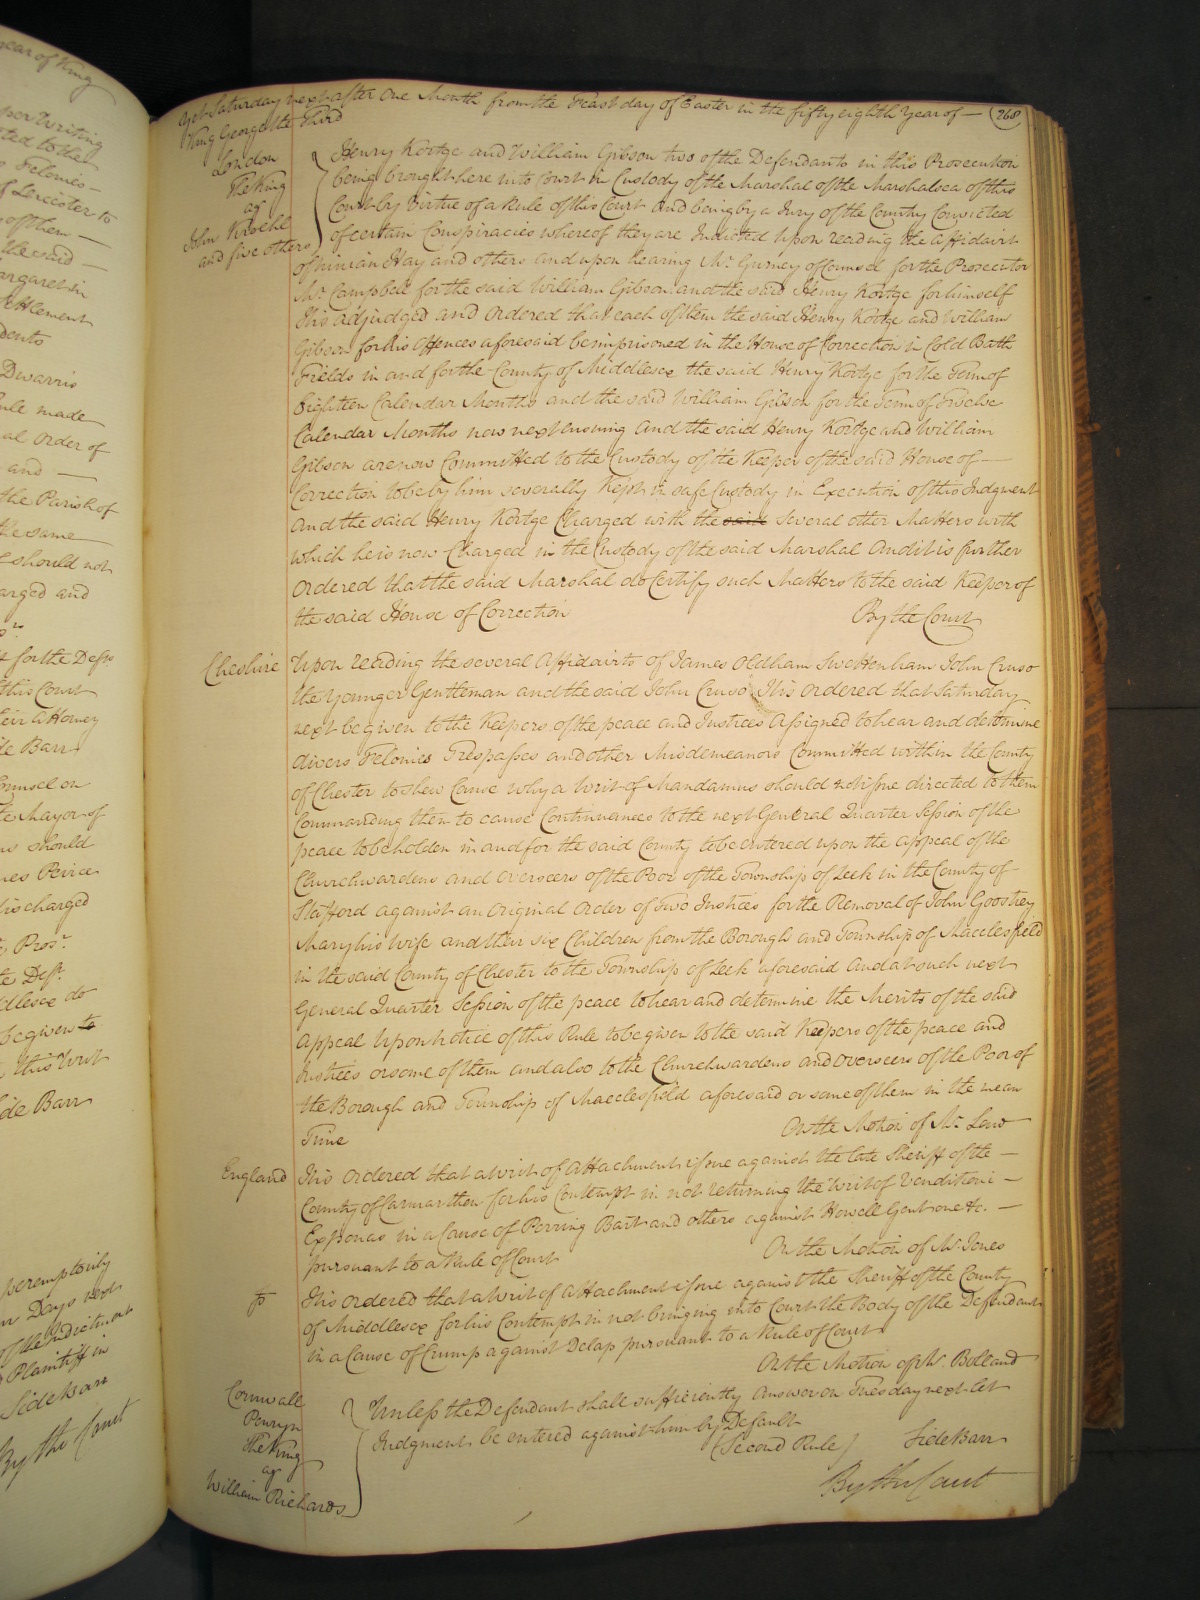 year of King
per Writing
ted to the
Felonies -
of Leicester to
of them -
the said -
argaret in
ettlement
dents
Dwarris
Rule made
al Order of
and -
the Parish of
the same
should not
arged and
for the Defts
this Court
eir Attorney
ide Barr
ounsel on
te Mayor of
should
mes Peirce
discharged
Prosr
te Deft
ddlesex do
be given to
this Writ
ide Barr
peremptorily
Days next
of the Indictment
Plaintiff in
Side Barr
By the Court
Yet Saturday next after One Month from the Feast day of Easter in the fifty eighth Year of — 268
King George the Third
London
The King
agt
John
and five others
Henry Kortge and William Gibson two of the Defendants in this Prosecution
being brought here into Court in Custody of the Marshal of the Marshalsea of this
Court by Virtue of a Rule of this Court and being by a Jury of the Country Convicted
of certain Conspiracies whereof they are Indicted Upon reading the affidavit
of Ninian Hay and others and upon hearing Mr. Gurney of Counsel for the Prosecutor
Mr. Campbell for the said William Gibson and the said Henry Kortge for himself
It is adjudged and Ordered that each of them the said Henry Kortge and William
Gibson for his Offences aforesaid be imprisoned in the House of Correction in Cold Bath
Fields in and for the County of Middlesex the said Henry Kortge for the Term of
Eighteen Calendar Months and the said William Gibson for the Term of Twelve
Calendar Months now next ensuing and the said Henry Kortge and William
Gibson are now Committed to the Custody of the Keeper of the said House of —
Correction to be by him severally kept in safe Custody in Execution of this Judgment
and the said Henry Kortge Charged with the said several other Matters with
which he is now Charged in the Custody of the said Marshal And it is further
Ordered that the said Marshal do Certify such Matters to the said Keeper of
the said House of Correction By the Court
Cheshire Upon reading the several Affidavits of James Oldham Swettenham John Cruso
the Younger Gentleman and the said John Cruso It is ordered that Saturday
next be given to the Keepers of the peace and Justices Assigned to hear and determine
divers Felonies Trespasses and other Misdemeanors Committed within the County
of Chester to shew Cause why a Writ of Mandamus should not issue directed to them
Commanding them to cause Continuances to the next General Quarter Session of the
peace to be holden in and for the said County to be entered upon the appeal of the
Churchwardens and Overseers of the Poor of the Township of Leek in the County of
Stafford against an Original Order of Two Justices for the Removal of John Goostrey
Mary his Wife and their six Children from the Borough and Township of Macclesfield
in the said County of Chester to the Township of Leek aforesaid And at such next
General Quarter Session of the peace to hear and determine the Merits of the said
Appeal Upon notice of this Rule to be given to the said Keepers of the peace and
Justices or some of them and also to the Churchwardens and Overseers of the Poor of
the Borough and Township of Macclesfield aforesaid or some of them in the mean
Time On the Motion of Mr. Law
England It is ordered that a Writ of Attachment issue against the late Sheriff of the —
County of Carmarthen for his Contempt in not returning the Writ of Venditioni —
Exponas in a Cause of Perring Bart and others against Howell Gent one &c. —
pursuant to a Rule of Court On the Motion of Mr. Jones
It is ordered that a Writ of Attachment issue against the Sheriff of the County
of Middlesex for his Contempt in not bringing into Court the Body of the Defendant
in a Cause of Crump against Delap pursuant to a Rule of Court
On the Motion of Mr. Bolland
Cornwall
Penryn
The King
agt
William Richards
Unless the Defendant shall sufficiently Answer on Tuesday next let
Judgment be entered against him by Default
(Second Rule) Side Barr
By the Court